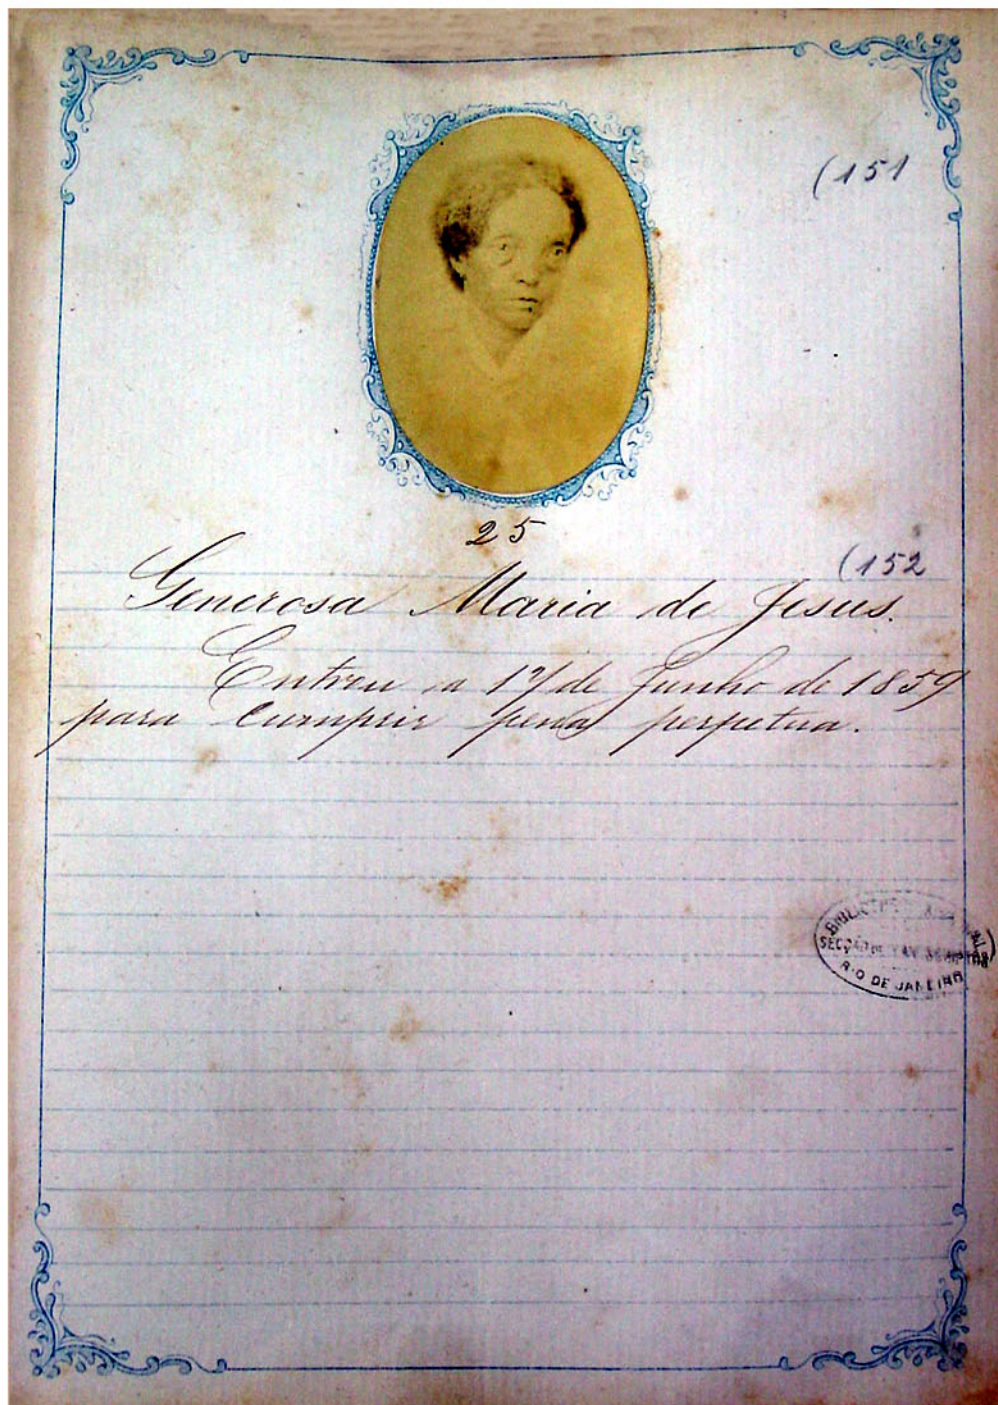 (151
25
(152
Generosa Maria de Jesus.
Entrou a 17 de Junho de 1859
para cumprir pena perpetua.
SECÇÃO DE
RIO DE JANEIRO